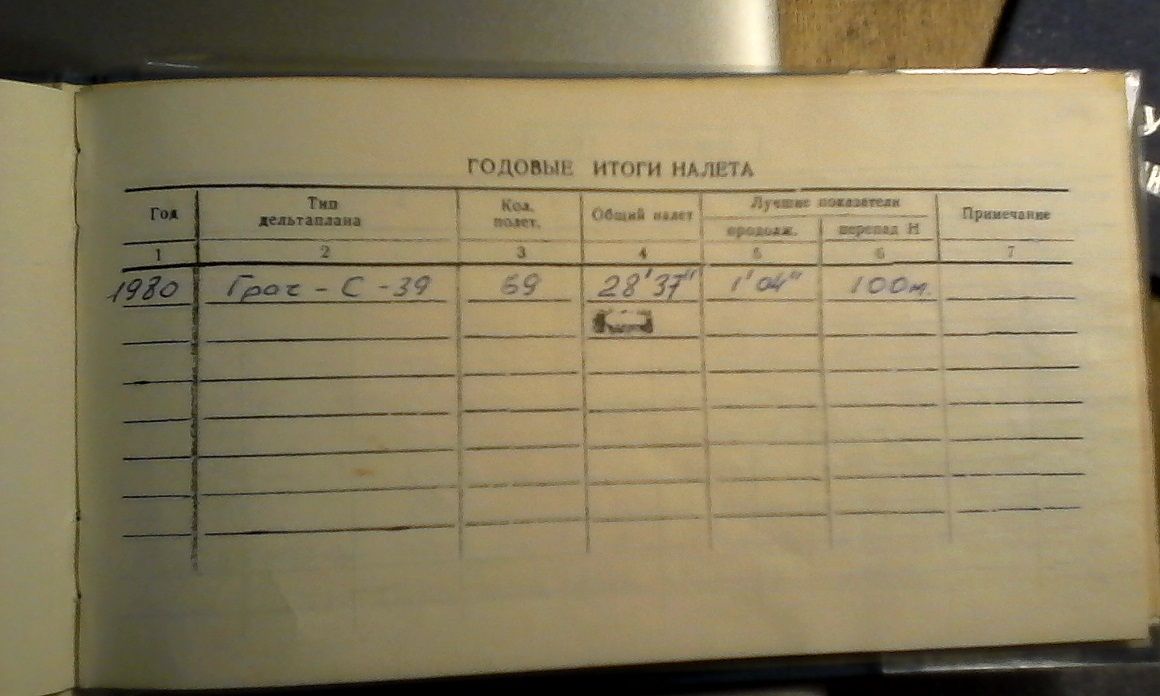 ГОДОВЫЕ ИТОГИ НАЛЕТА
Год Тип дельтаплана Кол. полет. Общий налет Лучшие показатели Примечание
продолж. перепад Н
1 2 3 4 5 6 7
1980 Грач - С - 39 69 28'37" 1'04" 100м.